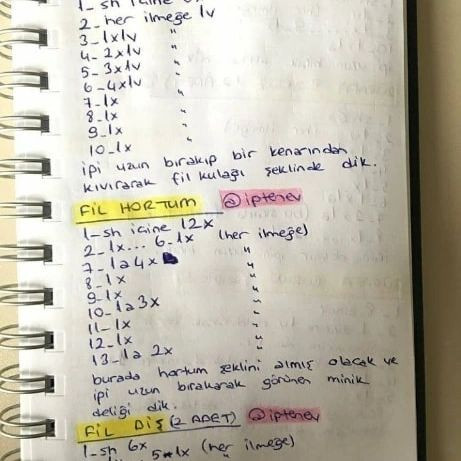 1_ sh içine
2_ her ilmeğe 1v
3_ 1x1v "
4_ 2x1v "
5_ 3x1v "
6_ 4x1v "
7_ 1x "
8_ 1x "
9_ 1x "
10_ 1x "
ipi uzun bırakıp bir kenarından
kıvırarak fil kulağı şeklinde dik.
FİL HORTUM @iptenev
1_ sh içine 12x
2_ 1x... 6_ 1x (her ilmeğe)
7_ 1a4x "
8_ 1x "
9_ 1x "
10_ 1a3x "
11_ 1x "
12_ 1x "
13_ 1a 2x "
burada hortum şeklini almış olacak ve
ipi uzun bırakarak görünen minik
deliği dik.
FİL DİŞ (2 ADET) @iptenev
1_ sh 6x
5_ 1x (her ilmeğe)